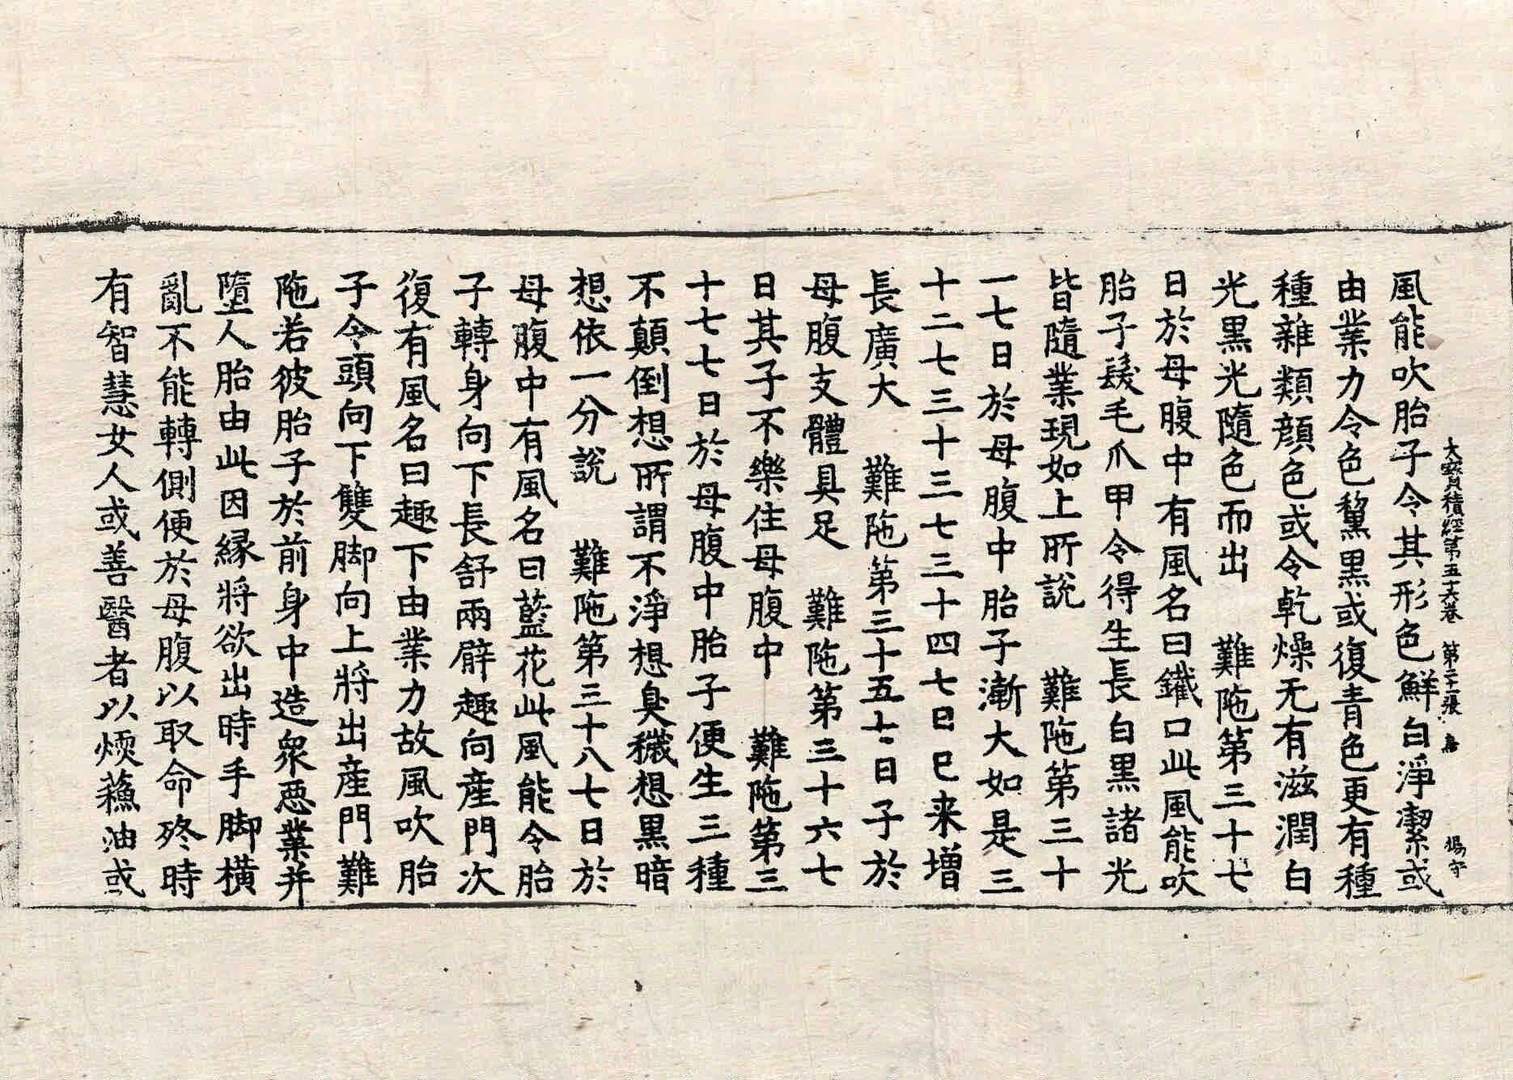 大寶積經第五十六卷 第二十張 鳥 楊守
風能吹胎子令其形色鮮白淨潔或
由業力令色黧黑或復青色更有種
種雜類顔色或令乾燥无有滋潤白
光黒光隨色而出 難陁第三十七
日於母腹中有風名曰鐵口此風能吹
胎子髮毛爪甲令得生長白黒諸光
皆隨業現如上所說 難陁第三十
一七日於母腹中胎子漸大如是三
十二七三十三七三十四七日已来增
長廣大 難陁第三十五七日子於
母腹支體具足 難陁第三十六七
日其子不樂住母腹中 難陁第三
十七七日於母腹中胎子便生三種
不顛倒想所謂不淨想臭穢想黒暗
想依一分說 難陁第三十八七日於
母腹中有風名曰藍花此風能令胎
子轉身向下長舒兩臂趣向産門次
復有風名曰趣下由業力故風吹胎
子令頭向下雙脚向上將出産門難
陁若彼胎子於前身中造衆惡業并
墮人胎由此因緣將欲出時手脚橫
亂不能轉側便於母腹以取命終時
有智慧女人或善醫者以煗蘓油或